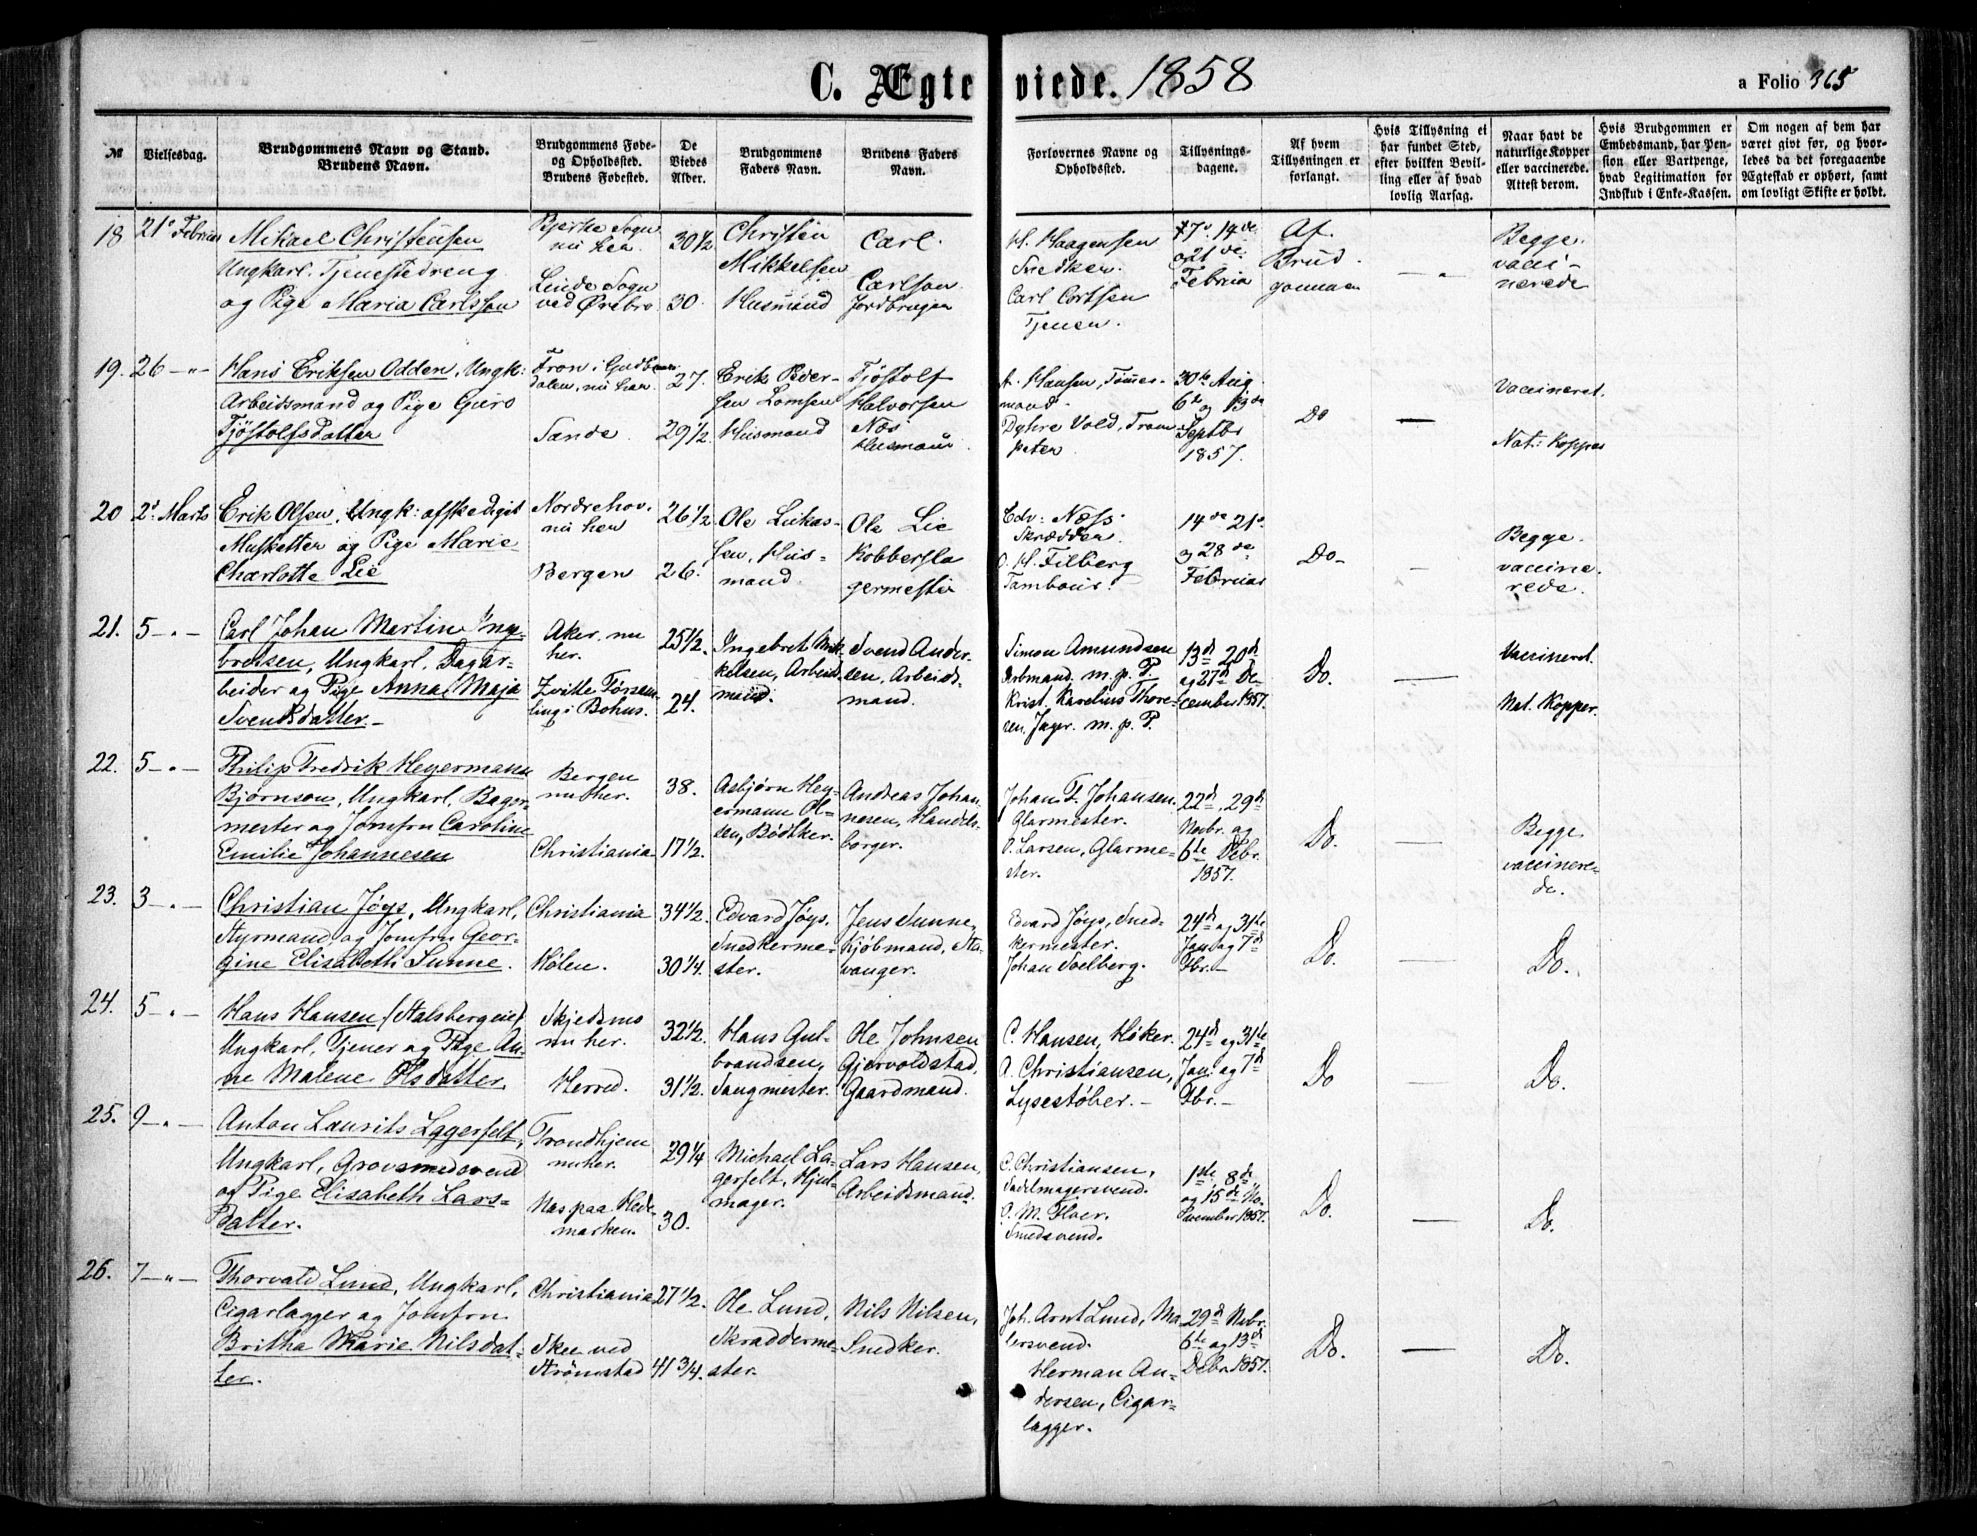 C. Ægteviede. 1858
a Folio 365
№
Vielsesdag.
Brudgommens Navn og Stand.
Brudens Navn.
Brudgommens Føde-
og Opholdssted.
Brudens Fødested.
De
Viedes
Alder.
Brudgommens
Faders Navn.
Brudens Faders
Navn.
Forlovernes Navne og
Opholdssted.
Tillysnings-
dagene.
Af hvem
Tillysningen er
forlangt.
Hvis Tillysning ei
har fundet Sted,
efter hvilken Bevil-
ling eller af hvad
lovlig Aarsag.
Naar havt de
naturlige Kopper
eller vaccinerede.
Attest derom.
Hvis Brudgommen er
Embedsmand, har Pen-
sion eller Vartpenge,
hvad Legitimation for
Indskud i Enke-Kassen.
Om nogen af dem har
været givt før, og hvor-
ledes da det foregaaende
Ægteskab er ophørt, samt
om lovligt Skifte er holdt.
18
21de Februar
Mikael Christensen
Ungkarl. Tjenestedreng
og Pige Maria Carlsson
Bjerke Sogn
nu her
Linde Sogn
ved Ørebro
30 1/2
30.
Christen
Mikkelsen
Husmand
Carl
Carlson
Jordbruger
H. Haagensen
Snedker.
Carl Cortsen
Tjener.
7de 14de
og 21de
Februar
Af
Brud-
gommen
— " —
Begge
vacci-
nerede
19.
26 — " —
Hans Eriksen Odden, Ungk:
Arbeidsmand og Pige Guro
Tjøstolfsdatter
Fron i Gudbrans-
dalen, nu her
Sande
27.
29 1/2
Erik Peder-
sen Lomsen
Husmand
Tjøstolf
Halvorsen
Næs
Husmand
A. Hansen, Tømer-
mand
Dyhre Vold, Trom-
peter
30te Aug
6te og 13de
Septbr
1857.
Do
—
Vaccineret.
Nat: Kopper
20
2den Marts
Erik Olsen, Ungk: afskediget
Musketter og Pige Marie
Charlotte Lie
Nordrehov
nu her
Bergen
26 1/2
26.
Ole Lukas-
sen, Hus-
mand
Ole Lie
Kobbersla
germester
Edv: Næss
Skrædder.
O. H. Filberg
Tambour.
14de 21de
og 28de
Februar
Do
—
Begge
vaccine-
rede.
21.
5 — " —
Carl Johan Martin Inge-
bretsen, Ungkarl, Dagar-
beider og Pige Anna Maja
Svensdatter.
Aker, nu
her.
Zvitle Førsam-
ling i Bohus.
25 1/2.
24.
Ingebret Mik-
kelsen, Arbeids-
mand.
Svend Ander-
sen, Arbeids-
mand.
Simon Amundsen
Arbmand. m. p. P.
Krist. Karelius Thore-
sen, Jæger. m. p. P.
13de 20de
og 27de De-
cember 1857.
Do.
—
Vaccineret.
Nat. Kopper.
22.
5 — " —
Philip Fredrik Heyermann
Bjørnson, Ungkarl, Bager-
mester og Jomfru Caroline
Emilie Johannesen
Bergen
nu her.
Christiania
38.
17 1/2.
Asbjørn Hey-
ermann Ol-
sen, Bødker.
Andreas Johan-
nesen, Handels-
borger.
Johan F. Johansen.
Glarmester.
O. Larsen, Glarme-
ster.
22de, 29de
Novbr. og
6te Debr.
1857.
Do.
—
Begge
vaccinere-
de.
23.
3 — " —
Christian Jøys, Ungkarl,
Styrmand og Jomfru Geor-
gine Elisabeth Sunne.
Christiania
Hølen.
34 1/2.
30 1/4.
Edvard Jøys,
Snedkerme-
ster.
Jens Sunne,
Kjøbmand, Sta-
vanger.
Edvard Jøys, Sned-
kermester.
Johan Soelberg.
24de og 31te
Jan. og 7de
Fbr.
Do.
—
Do.
24.
5 — " —
Hans Hansen (Stalsbergeie)
Ungkarl, Tjener og Pige An-
ne Malene Olsdatter
Skjedsmo
nu her.
Herred.
32 1/2.
31 1/2.
Hans Gul-
brandsen,
Saugmester.
Ole Johnsen
Gjervoldstad,
Gaardmand.
C. Hansen, Høker.
A. Christiansen,
Lysestøber.
24de og 31te
Jan: og 7de
Fbr.
Do
—
Do.
25.
9 — " —
Anton Laurits Lagerfelt,
Ungkarl, Grovsmedsvend
og Pige Elisabeth Lars-
datter.
Trondhjem
nu her.
Næs paa Hede-
marken.
29 1/4
30.
Michael La-
gerfelt, Hjul-
mager.
Lars Hansen,
Arbeidsmand.
C. Christiansen,
Sadelmagersvend.
Smedsvend.
1ste, 8de,
og 15de No-
vember 1857.
Do.
—
Do.
26.
7 — " —
Thorvald Lund, Ungkarl,
Cigarlægger og Jomfru
Britha Marie Nilsdat-
ter.
Christiania
Skee ved
Strømstad
27 1/2.
41 3/4.
Ole Lund,
Skrædderme-
ster.
Nils Nilsen,
Snedker.
Joh. Arnt Lund, Ma-
lersvend.
Herman An-
dersen, Cigar-
lægger.
29de Novbr.
6te og 13de
Debr. 1857.
Do.
—
Do.